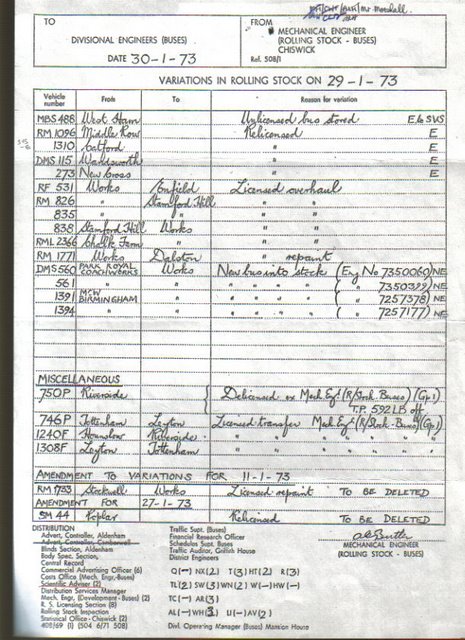 Mr. Marshall.
TO
DIVISIONAL ENGINEERS (BUSES)
DATE 30-1-73
FROM
MECHANICAL ENGINEER
(ROLLING STOCK - BUSES)
CHISWICK
Ref. 508/1
VARIATIONS IN ROLLING STOCK ON 29-1-73
Vehicle number From To Reason for variation
MBS 488 West Ham Unlicensed bus stored E to SVS
RM 1096 Middle Row Relicensed E
1310 Catford " E
DMS 115 Wandsworth " E
273 New Cross " E
RF 531 Works Enfield Licensed overhaul
RM 826 " Stamford Hill " "
835 " " " "
838 Stamford Hill Works " "
RML 2366 Chalk Farm " " "
RM 1771 Works Dalston " repaint
DMS 560 PARK ROYAL COACHWORKS Works New bus into stock (Eng No 7350060) NE
561 " " " " " ( " " 7350399) NE
1391 MCW BIRMINGHAM " " " " " ( " " 7257378) NE
1394 " " " " " ( " " 7257177) NE
MISCELLANEOUS
750P Riverside { Delicensed ex Mech Eng (R/Stock. Buses) (Gp 1)
T.P. 592 LB off
746P Tottenham Leyton Licensed transfer Mech Eng (R/Stock-Buses) (Gp 1)
1240F Hounslow Riverside " " " " " "
1308F Leyton Tottenham " " " " " "
AMENDMENT TO VARIATIONS FOR 11-1-73
RM 1733 Stockwell Works Licensed repaint TO BE DELETED
AMENDMENT FOR 27-1-73
SM 44 Poplar Relicensed TO BE DELETED
DISTRIBUTION
Advert, Controller, Aldenham
Advert, Controller, Camberwell
Blinds Section, Aldenham
Body Spec. Section,
Central Record
Commercial Advertising Officer (6)
Costs Office (Mech. Engr.-Buses)
Scientific Adviser (2)
Distribution Services Manager
Mech. Engr. (Development - Buses) (2)
R. S. Licensing Section (8)
Rolling Stock Inspection
Statistical Office - Chiswick (2)
408/69 (1) (504 6/71 508)
Traffic Supt. (Buses)
Financial Research Officer
Schedules Supt. Buses
Traffic Auditor, Griffith House
District Engineers
Q(-) NX(2) T(3) HT(2) R(3)
TL(2) SW(3) WN(2) W(-) HW(-)
TC(-) AR(3)
AL(-) WH(3) U(-) AV(2)
Divl. Operating Manager (Buses) Mansion House
MECHANICAL ENGINEER
(ROLLING STOCK - BUSES)